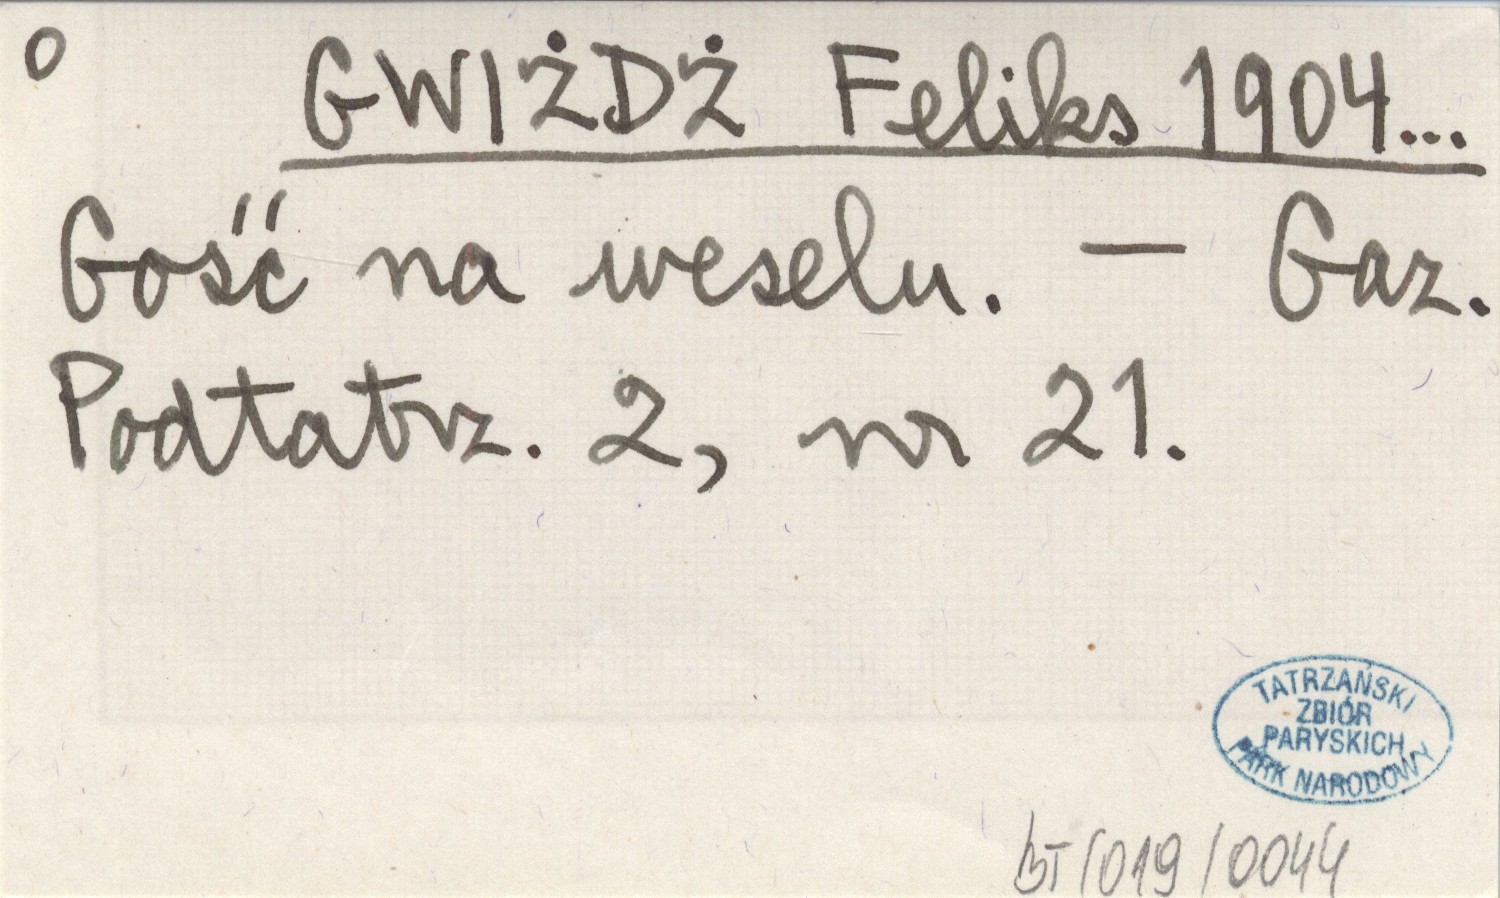 O GWIŻDŻ Feliks 1904...
Gość na weselu. — Gaz.
Podtatrz. 2, nr 21.
TATRZAŃSKI
ZBIÓR
PARYSKICH
PARK NARODOWY
BT/019/0044